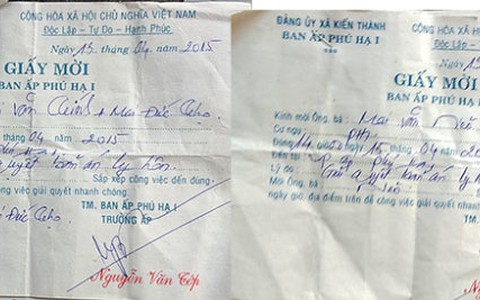 CỘNG HÒA XÃ HỘI CHỦ NGHĨA VIỆT NAM
Độc Lập - Tự Do - Hạnh Phúc
Ngày 15 tháng 04 năm 2015
GIẤY MỜI
BAN ẤP PHÚ HẠ I
Văn + Mai Đức
04 năm 2015
quyết ly hôn.
Sắp xếp công việc đến đúng.
công việc giải quyết nhanh chóng.
TM. BAN ẤP PHÚ HẠ I
TRƯỞNG ẤP
Đức
Nguyễn Văn Tốp
ĐẢNG ỦY XÃ KIẾN THÀNH
BAN ẤP PHÚ HẠ I
***
CỘNG HÒA XÃ
Độc Lập
Ngày 15
GIẤY M
BAN ẤP PHÚ
Kính mời Ông, bà: Mai Văn
Cư ngụ:
Đúng 14 giờ ngày 15, tháng 04
Đến tại:
Lý do: quyết ly
Mời Ông, Bà
ngày giờ, địa điểm trên để công việc giải quyết nhanh
TM. B
Nguyễ